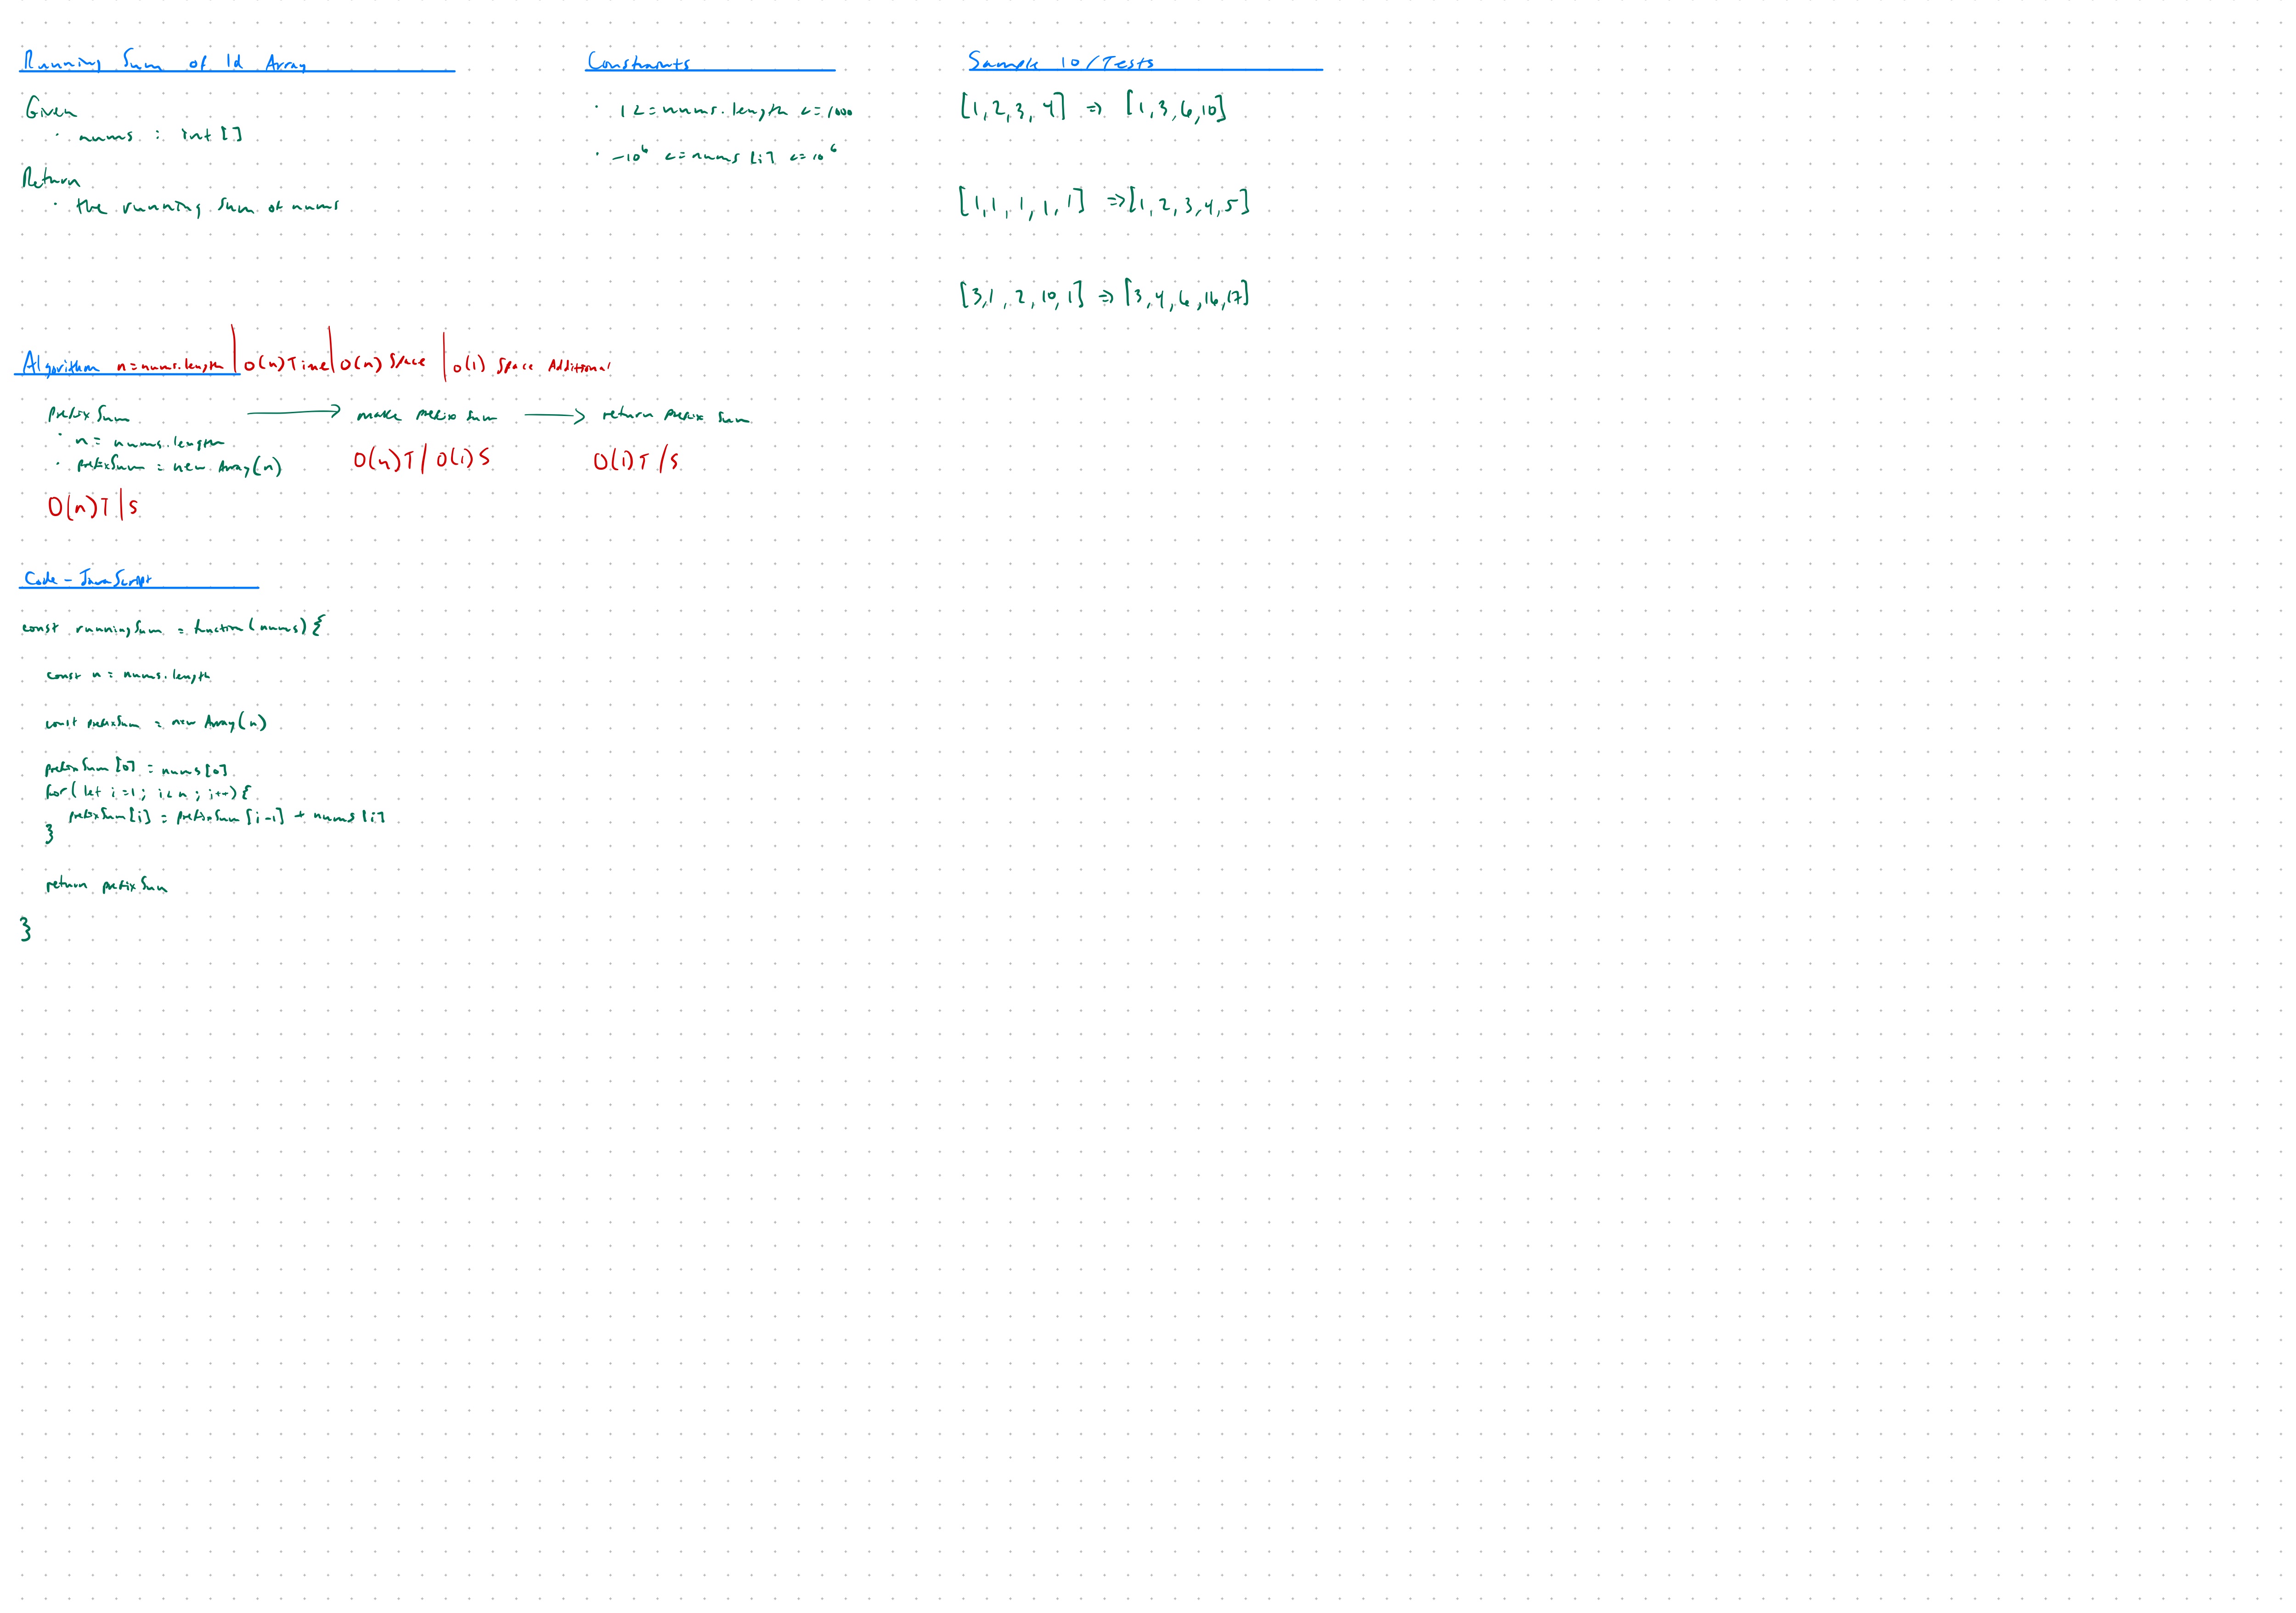 Running Sum of 1d Array
Given
· nums : int []
Return
· the running sum of nums
Constraints
· 1 <= nums.length <= 1000
· -10^6 <= nums[i] <= 10^6
Sample IO/Tests
[1, 2, 3, 4] => [1, 3, 6, 10]
[1, 1, 1, 1, 1] => [1, 2, 3, 4, 5]
[3, 1, 2, 10, 1] => [3, 4, 6, 16, 17]
Algorithm n = nums.length | O(n) Time | O(n) Space | O(1) Space Additional
prefixSum → make prefix sum → return prefix sum
· n = nums.length
· prefixSum = new Array(n)
O(n) T | S
O(n) T / O(1) S
O(1) T / S
Code - JavaScript
const runningSum = function(nums) {
const n = nums.length
const prefixSum = new Array(n)
prefixSum[0] = nums[0]
for( let i = 1; i < n; i++) {
prefixSum[i] = prefixSum[i-1] + nums[i]
}
return prefixSum
}